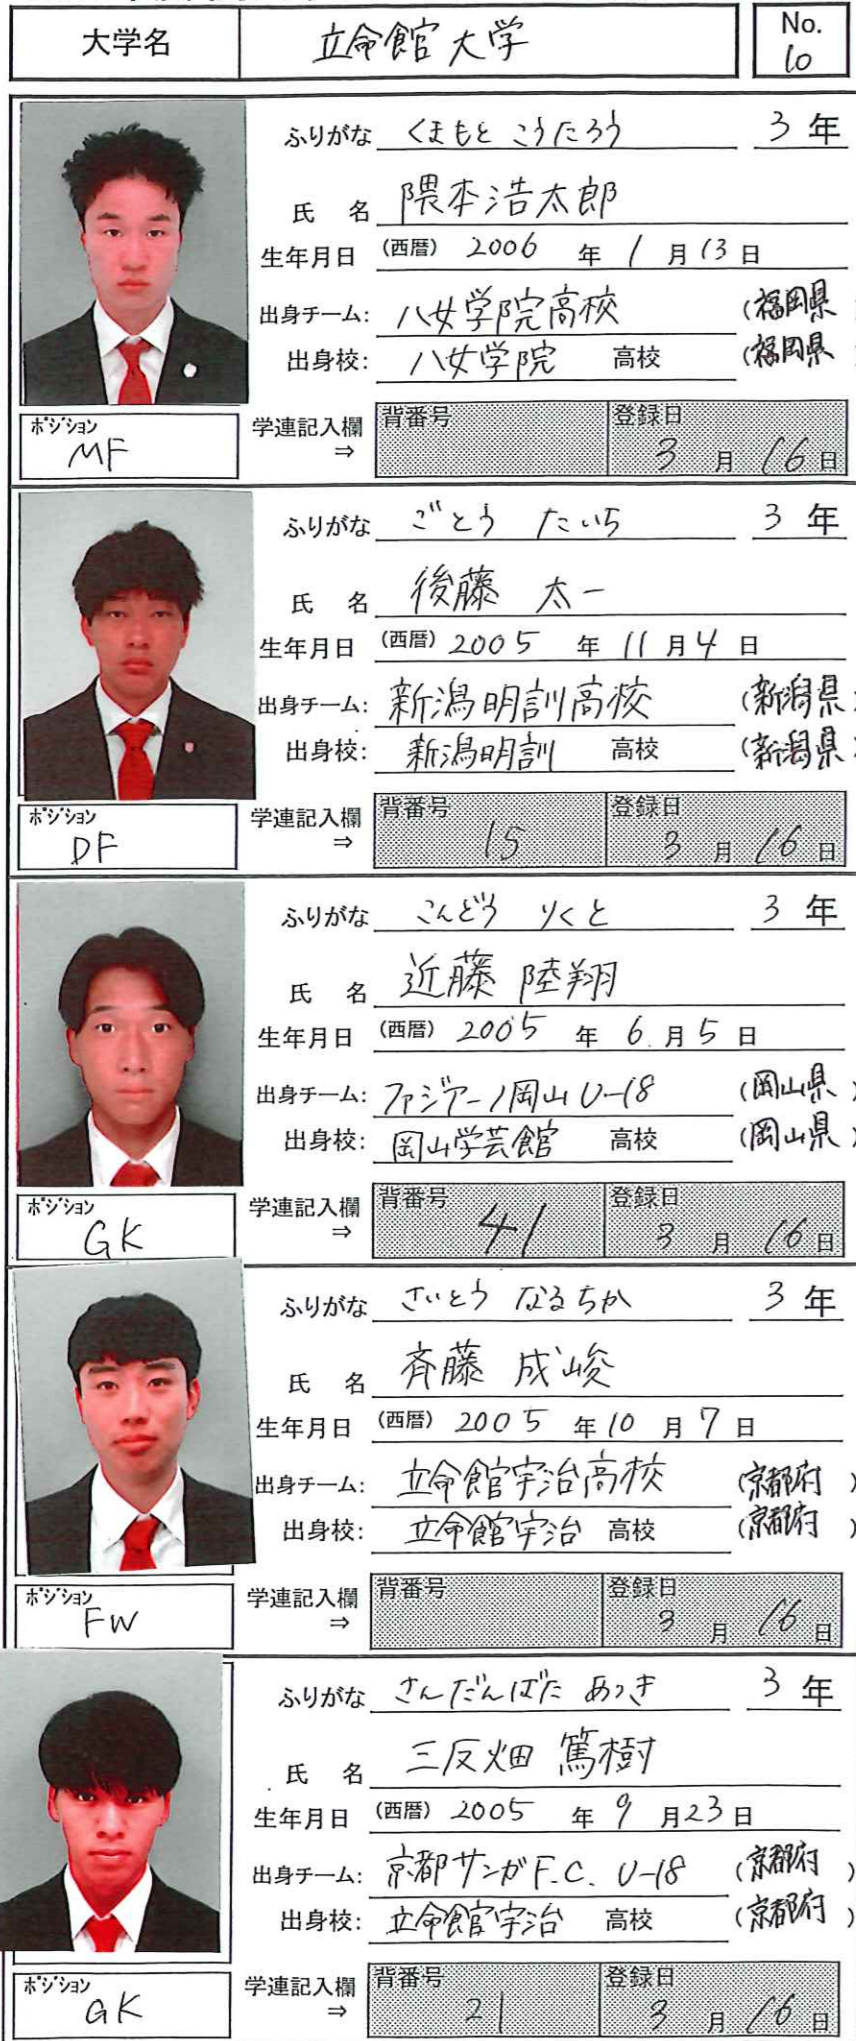 大学名 立命館大学 No. 10
ふりがな くまもと こうたろう 3 年
氏 名 隈本浩太郎
生年月日 (西暦) 2006 年 1 月 13 日
出身チーム: 八女学院高校 (福岡県
出身校: 八女学院 高校 (福岡県
ポジション MF 学連記入欄 ⇒ 背番号 登録日 3 月 16 日
ふりがな ごとう たいち 3 年
氏 名 後藤 太一
生年月日 (西暦) 2005 年 11 月 4 日
出身チーム: 新潟明訓高校 (新潟県)
出身校: 新潟明訓 高校 (新潟県)
ポジション DF 学連記入欄 ⇒ 背番号 15 登録日 3 月 16 日
ふりがな こんどう りくと 3 年
氏 名 近藤 陸翔
生年月日 (西暦) 2005 年 6 月 5 日
出身チーム: ファジアーノ岡山 U-18 (岡山県)
出身校: 岡山学芸館 高校 (岡山県)
ポジション GK 学連記入欄 ⇒ 背番号 41 登録日 3 月 16 日
ふりがな さいとう なるちか 3 年
氏 名 斉藤 成峻
生年月日 (西暦) 2005 年 10 月 7 日
出身チーム: 立命館宇治高校 (京都府)
出身校: 立命館宇治 高校 (京都府)
ポジション FW 学連記入欄 ⇒ 背番号 登録日 3 月 16 日
ふりがな さんだんばた あつき 3 年
氏 名 三反畑 篤樹
生年月日 (西暦) 2005 年 9 月 23 日
出身チーム: 京都サンガF.C. U-18 (京都府)
出身校: 立命館宇治 高校 (京都府)
ポジション GK 学連記入欄 ⇒ 背番号 21 登録日 3 月 16 日